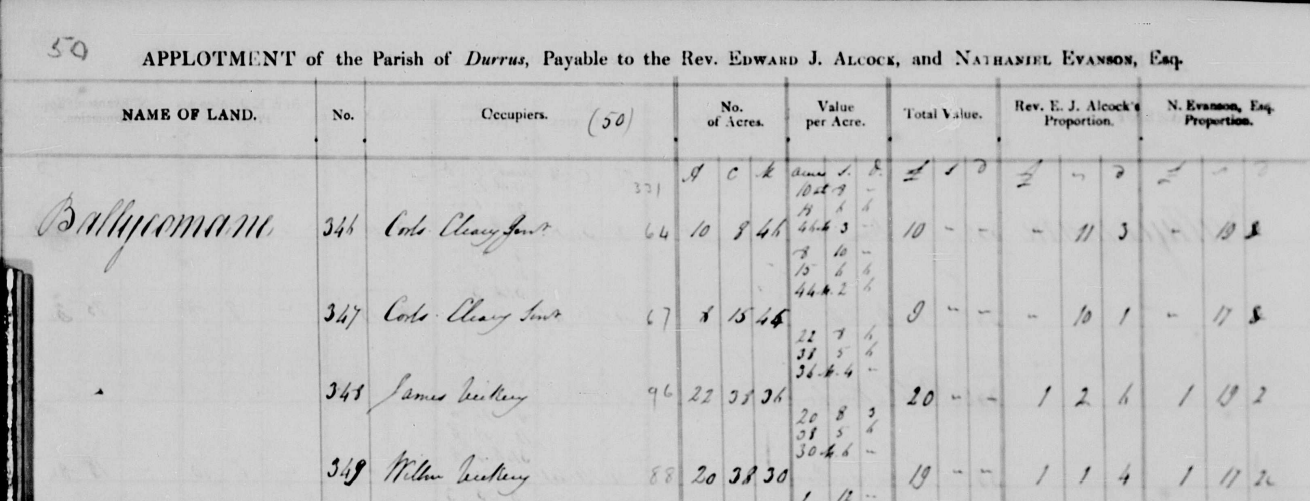 50
APPLOTMENT of the Parish of Durrus, Payable to the Rev. EDWARD J. ALCOCK, and NATHANIEL EVANSON, Esq.
NAME OF LAND. No. Occupiers. (50) No. of Acres. Value per Acre. Total Value. Rev. E. J. Alcock's Proportion. N. Evanson, Esq. Proportion.
331 A C M Acres S. D. £ s D £ " D £ " D
10 at 8 -
6 6
Ballycomane 346 Corls. Cleary Junr. 64 10 8 46 46 at 3 - 10 - - - 11 3 - 19 8
8 10 -
15 6 6
44 at 2 6
347 Corls. Cleary Senr. 67 8 15 9 - - - 10 1 - 17 8
22 8 6
38 5 6
36 at 4 -
348 James Vickery 96 22 38 36 20 - - 1 2 6 1 19 2
20 8 3
38 5 6
30 at 6 -
349 Willm Vickery 88 20 38 30 19 - - 1 1 4 1 17